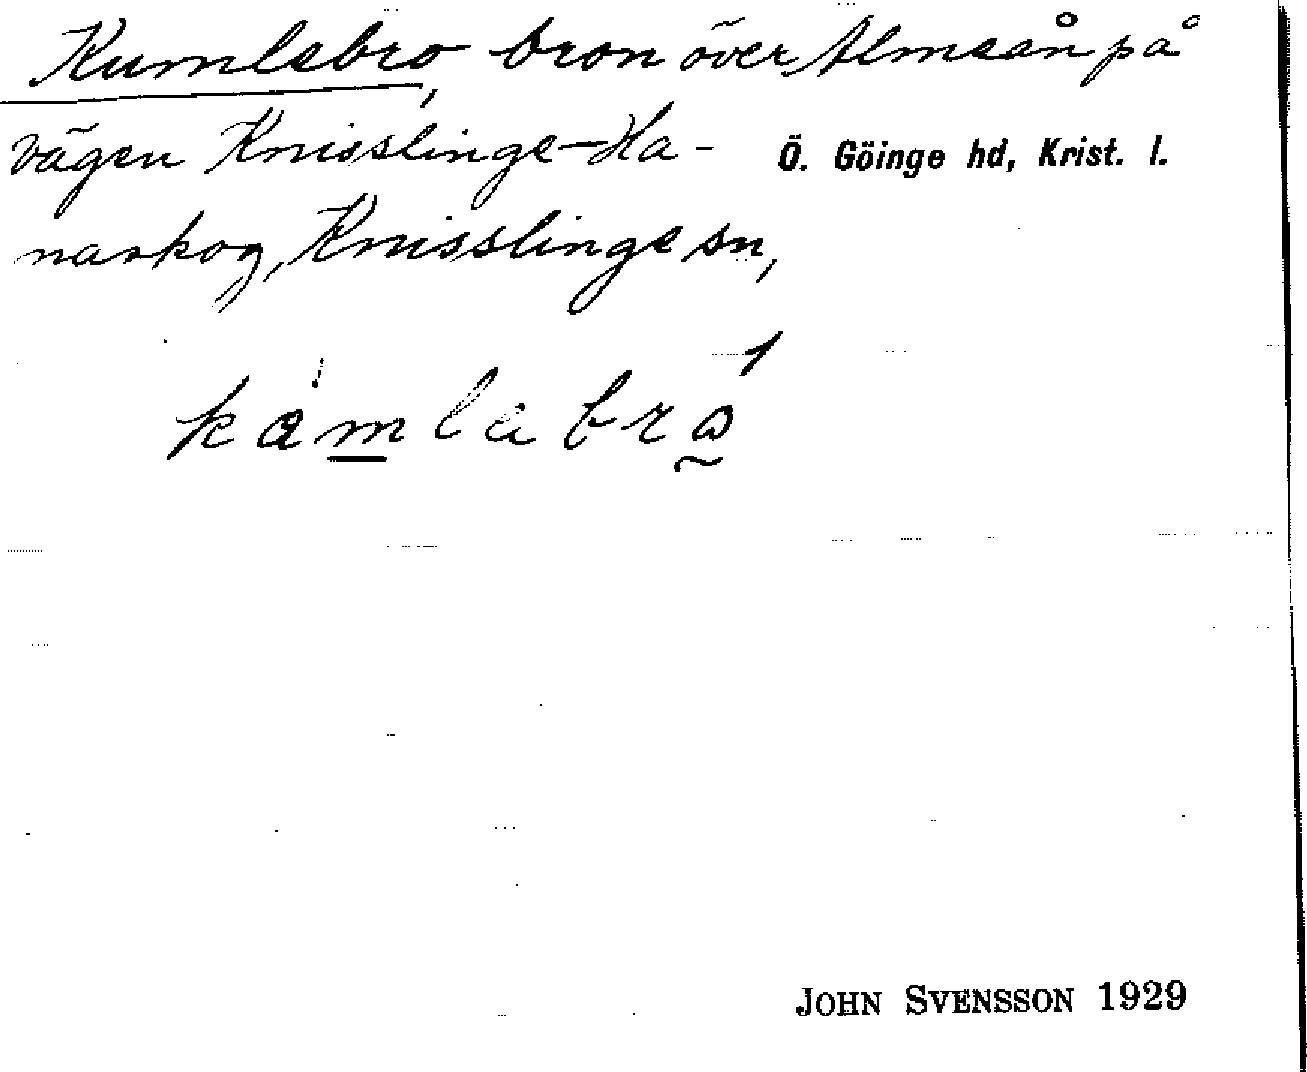 Kumlebro, bron över Almaån på
vägen Knisslinge-Ha-
narkog, Knisslinge sn,
Ö. Göinge hd, Krist. l.
JOHN SVENSSON 1929